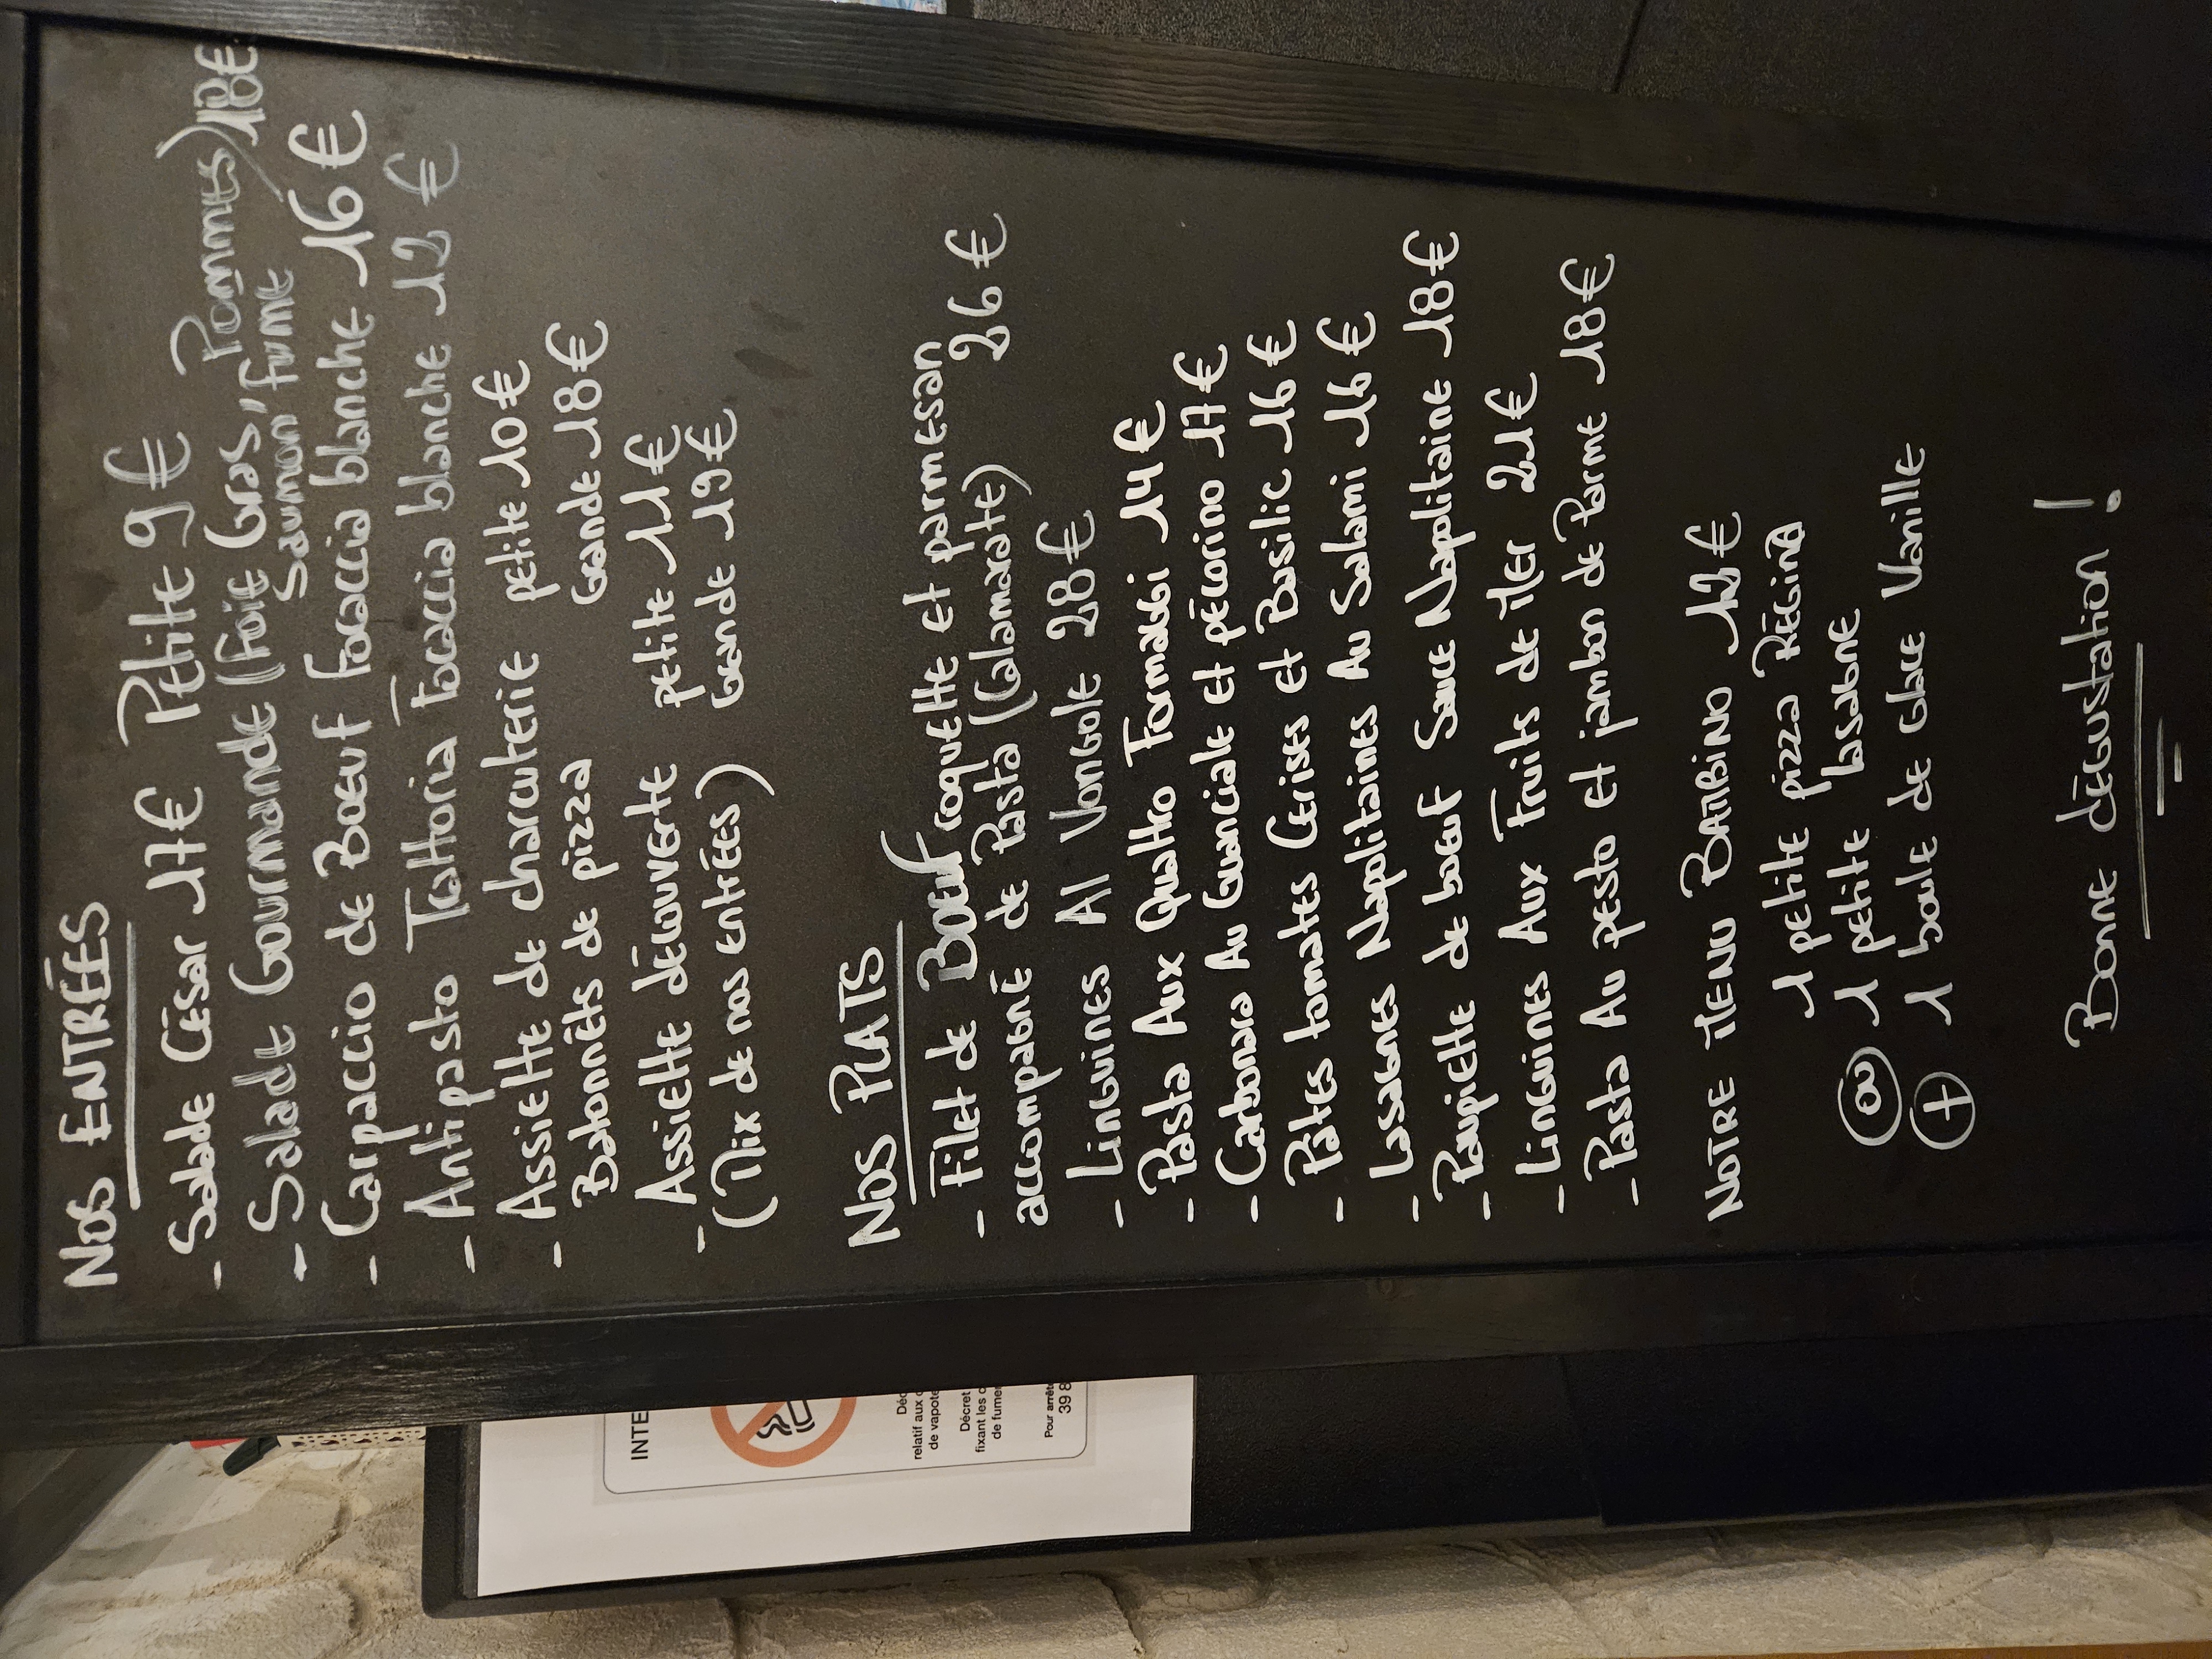 NOS ENTRÉES
- Salade César 17€ Petite 9€
- Salade Gourmande (Foie Gras, Pommes) 18€
Saumon fumé
- Carpaccio de Boeuf focaccia blanche 16€
- Antipasto Tattoria Focaccia blanche 12€
- Assiette de charcuterie petite 10€
- Batonnêts de pizza Grande 18€
- Assiette découverte petite 11€
(Mix de nos entrées) Grande 19€
NOS PLATS
- Filet de Boeuf roquette et parmesan
accompagné de Pasta (Calamarate) 26€
- Linguines Al Vongole 28€
- Pasta Aux Quattro Formaggi 14€
- Carbonara Au Guanciale et pécorino 17€
- Pâtes tomates Cerises et Basilic 16€
- Lasagnes Napolitaines Au Salami 16€
- Paupiette de boeuf Sauce Napolitaine 18€
- Linguines Aux Fruits de Mer 21€
- Pasta Au pesto et jambon de Parme 18€
NOTRE MENU BAMBINO 12€
1 petite pizza Régina
ou 1 petite lasagne
+ 1 boule de glace Vanille
Bonne dégustation !
INTE
Déc
relatif aux
de vapote
Décret
fixant les c
de fumer
Pour arrête
39 8